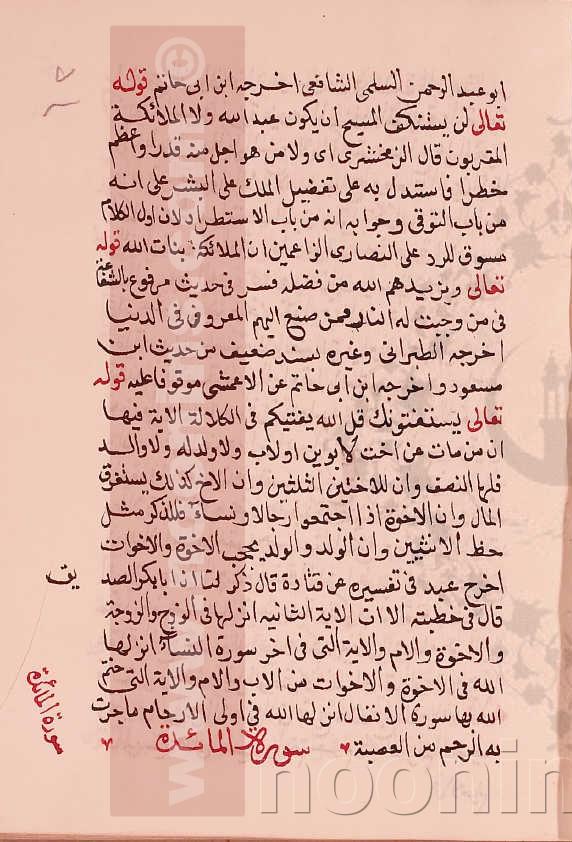 ابو عبد الرحمن السلمى الشافعى اخرجه ابن ابى حاتم قوله
تعالى لن يستنكف المسيح ان يكون عبدا لله ولا الملائكة
المقربون قال الزمخشرى اى ولا من هو اجل منه قدرا واعظم
خطرا فاستدل به على تفضيل الملك على البشر على انه
من باب الترقى وجوابه انه من باب الاستطراد لان اول الكلام
مسوق للرد على النصارى الزاعمين ان الملائكة بنات الله قوله
تعالى ويزيدهم الله من فضله فسر فى حديث مرفوع بالشفاعة
فى من وجبت له النار فمن صنع اليهم المعروف فى الدنيا
اخرجه الطبرانى وغيره بسند ضعيف من حديث ابن
مسعود واخرجه ابن ابى حاتم عن الاعمش موقوفا عليه قوله
تعالى يستفتونك قل الله يفتيكم فى الكلالة الاية فيها
ان من مات عن اخت لابوين او لاب ولا ولد له ولا والد
فلها النصف وان للاختين الثلثين وان الاخ كذلك يستغرق
المال وان الاخوة اذا اجتمعوا رجالا ونساء فللذكر مثل
حظ الانثيين وان الولد والولد يحجب الاخوة والاخوات
اخرج عبد فى تفسيره عن قتادة قال ذكر لنا ان ابا بكر الصد
يق
قال فى خطبته الا ان الاية الثانيه انزلها فى الزوج والزوجة
والاخوة والام والاية التى فى اخر سورة النساء انزلها
الله فى الاخوة والاخوات من الاب والام والاية التى ختم
الله بها سورة الانفال انزلها الله فى اولى الارحام ما جرت
به الرحم من العصبة سورة المائدة
سورة المائدة
noorin